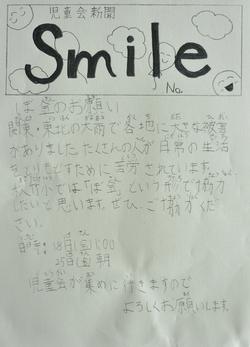 児童会新聞
Smile
No.
ぼ金のお願い
関東・東北の大雨で各地に大きな被害
がありました。たくさんの人が日常の生活
をとりもどすために苦労されています。
小では「ぼ金」という形で協力
したいと思います。ぜひ、ご協力くだ
さい。
日時 18日(金)
25日(金)朝
児童会が集めに行きますので
よろしくお願いします。